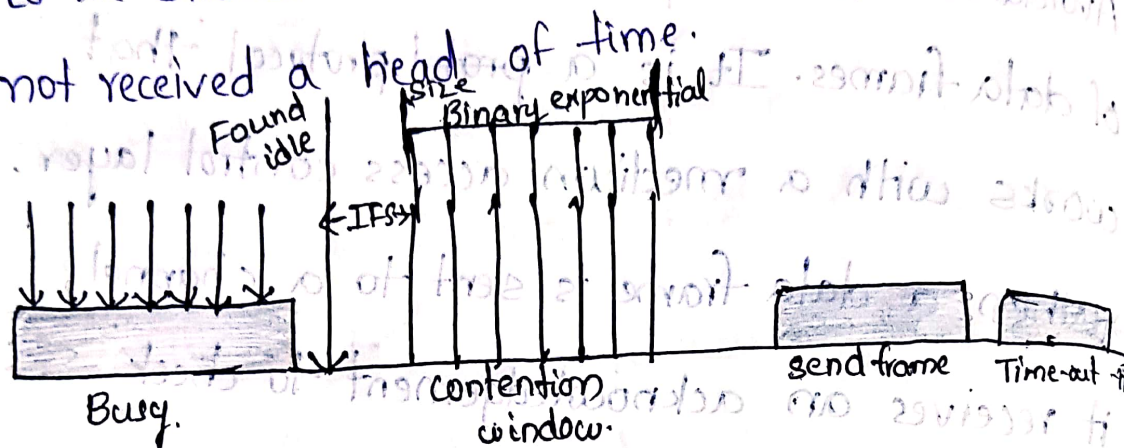 not received a head of time.
Found
idle
size
Binary exponential
IFS
Busy.
contention
window.
send frame
Time-out